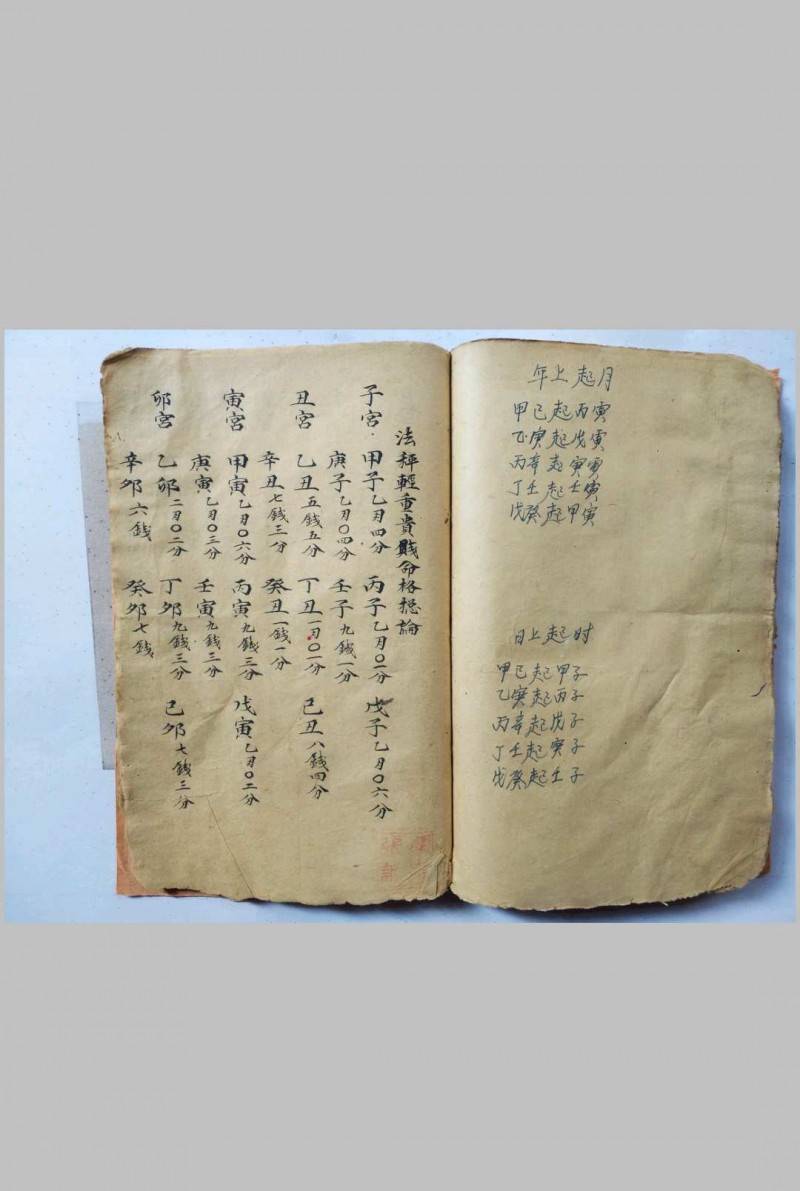 年上起月
甲己起丙寅
乙庚起戊寅
丙辛起庚寅
丁壬起壬寅
戊癸起甲寅
日上起时
甲己起甲子
乙庚起丙子
丙辛起戊子
丁壬起庚子
戊癸起壬子
法秤輕重貴賤命格總論
子宮 甲子乙刄四分 丙子乙刄〇一分 戊子乙刄〇六分
庚子乙刄〇四分 壬子九錢一分
丑宮 乙丑五錢五分 丁丑一刄〇一分 己丑八錢四分
辛丑七錢三分 癸丑一錢一分
寅宮 甲寅乙刄〇六分 丙寅九錢三分 戊寅乙刄〇二分
庚寅乙刄〇三分 壬寅九錢三分
卯宮 乙卯二刄〇二分 丁卯九錢三分 己卯七錢三分
辛卯六錢 癸卯七錢